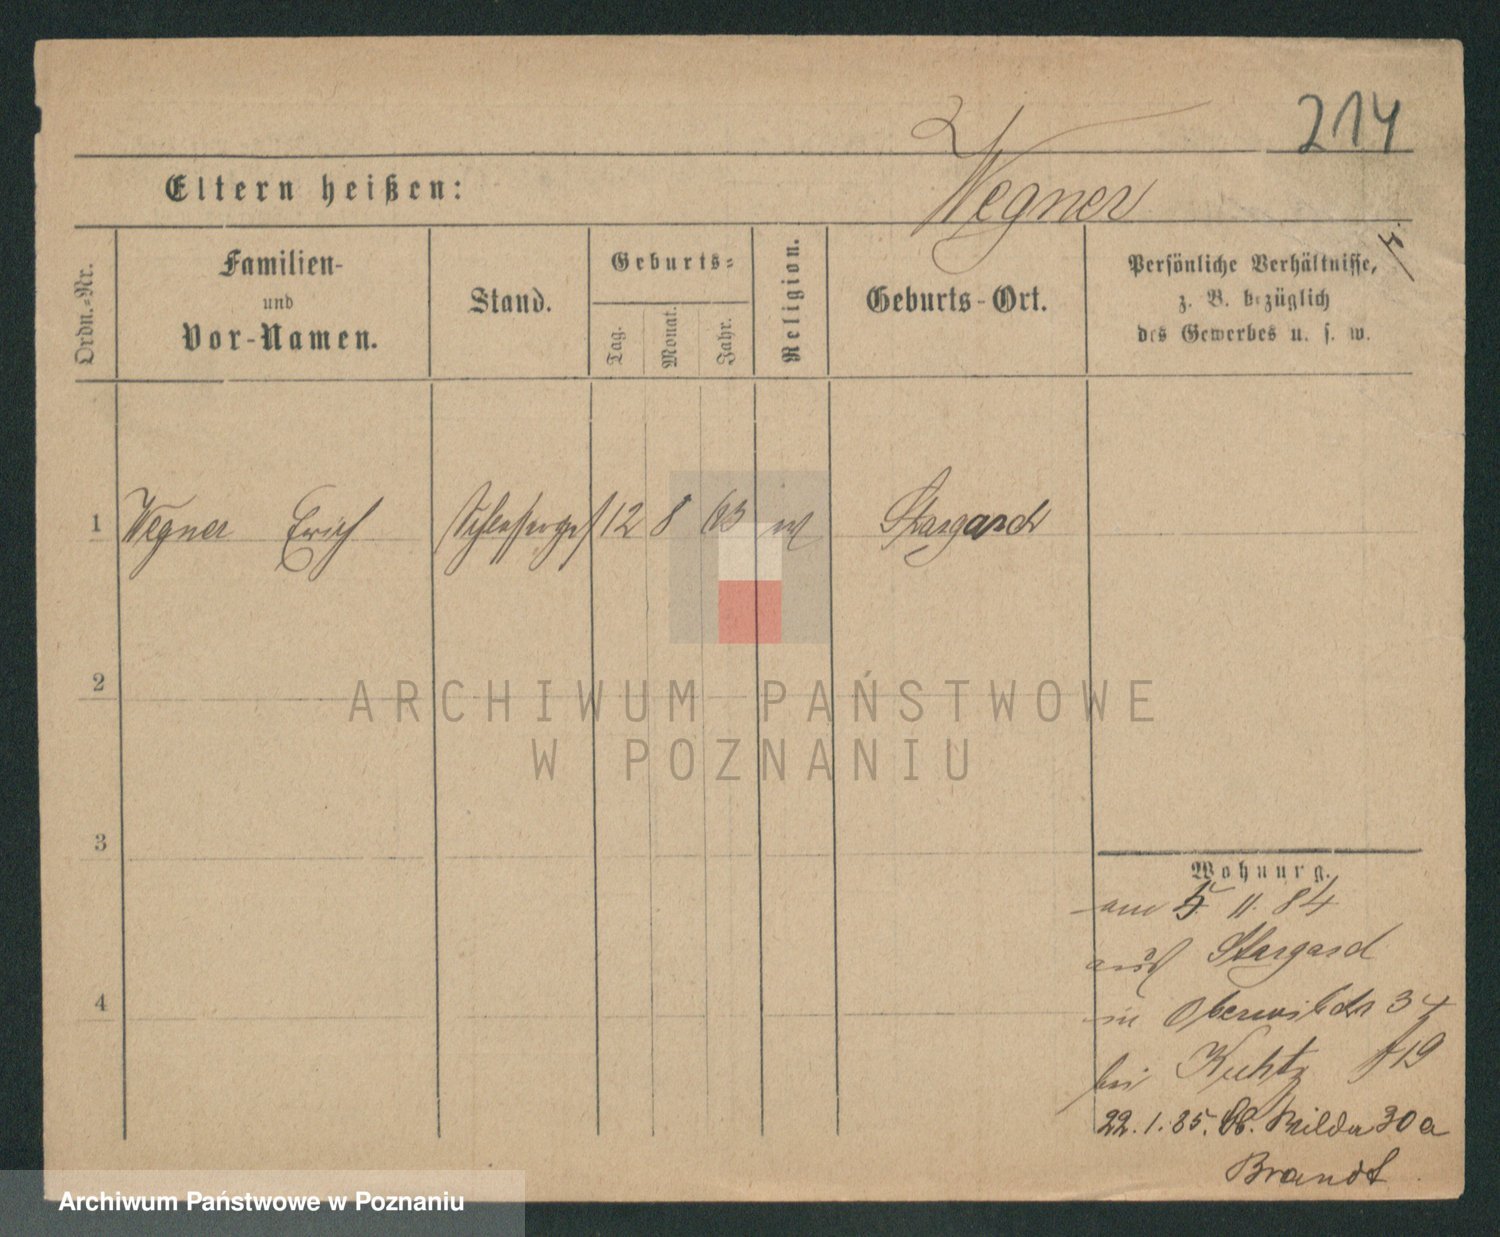 214
Eltern heißen:
Wegner
Ordn.-Nr.
Familien-
und
Vor-Namen.
Stand.
Geburts-
Tag.
Monat.
Jahr.
Religion.
Geburts-Ort.
Persönliche Verhältnisse,
z. B. bezüglich
des Gewerbes u. s. w.
1 Wegner Erich 12 8 63 Stargard
2
3
4
ARCHIWUM PAŃSTWOWE
W POZNANIU
Wohnung.
am 5. 11. 84
aus Stargard
in Oberwilda 34
bei Kuhtz 19
22. 1. 85. Ob. Wilda 30a
Brandt
Archiwum Państwowe w Poznaniu